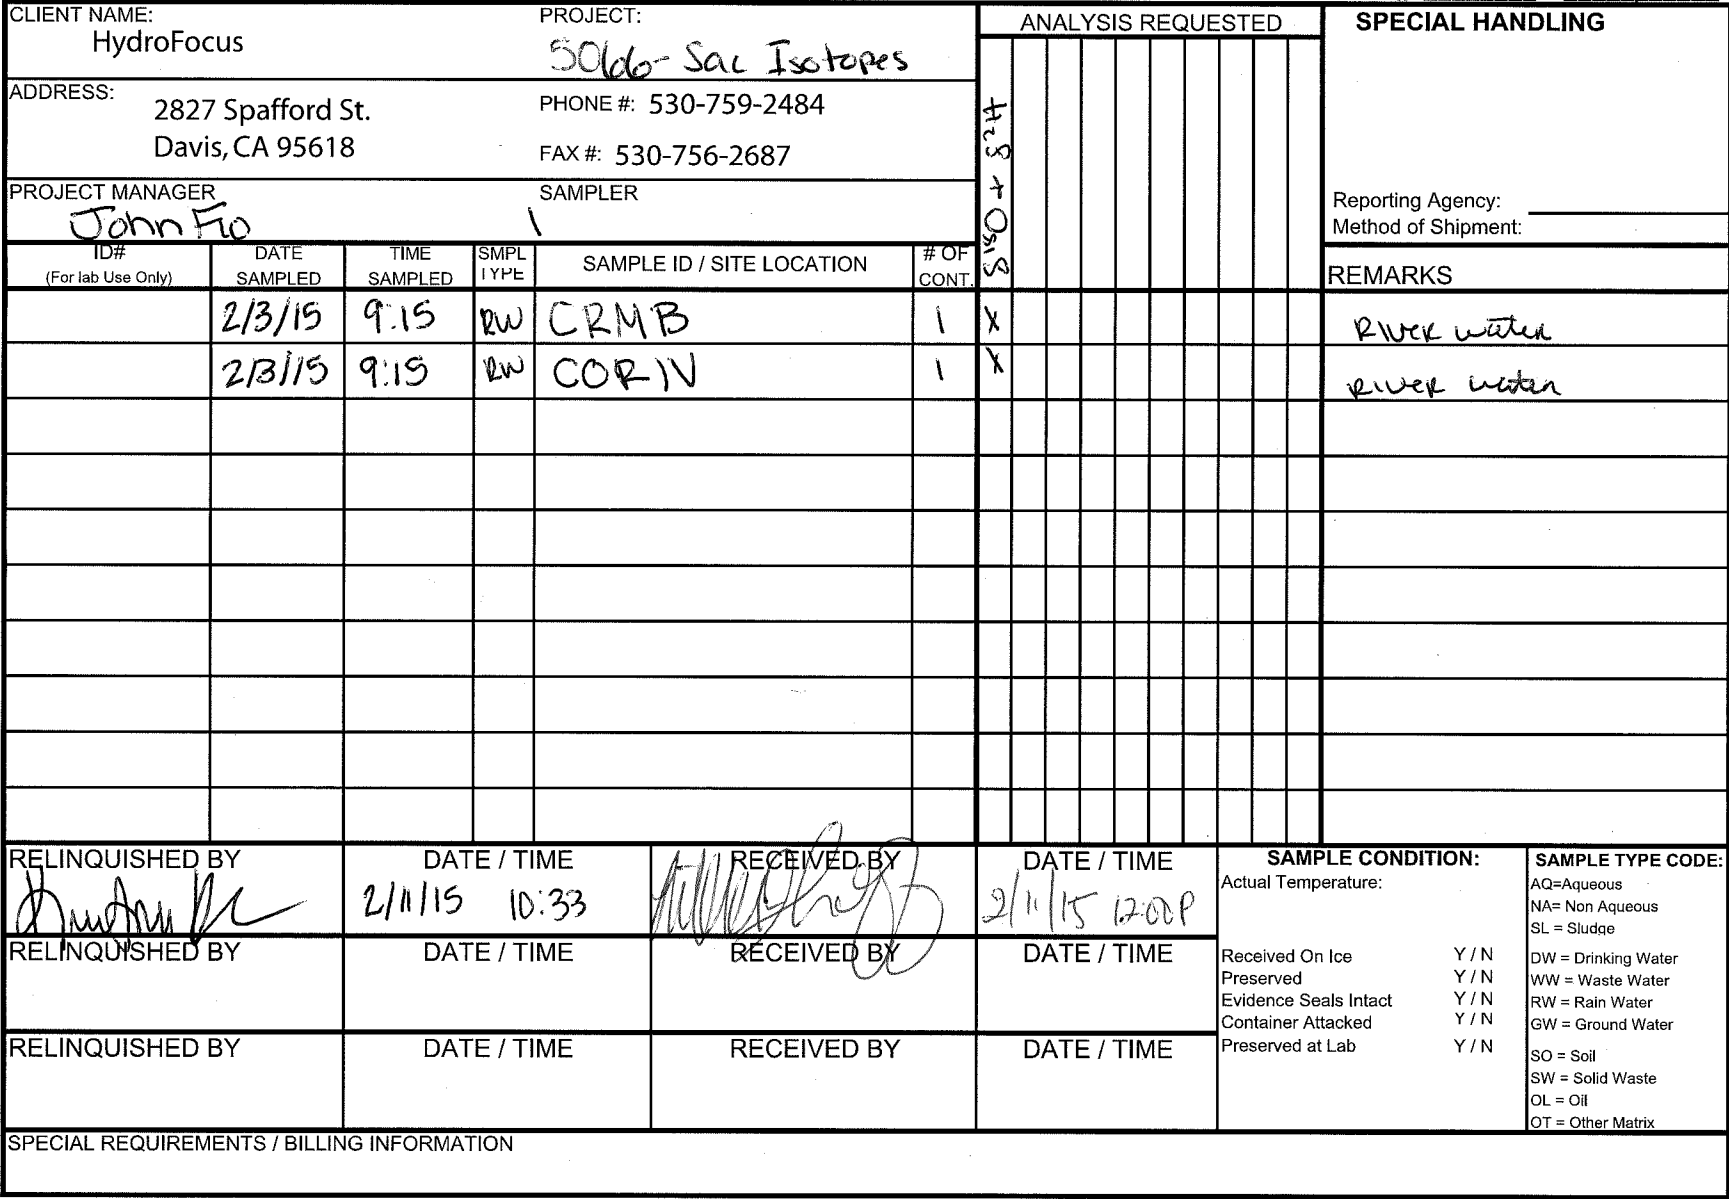 CLIENT NAME:
HydroFocus
PROJECT:
5066- Sac Isotopes
ADDRESS:
2827 Spafford St.
Davis, CA 95618
PHONE #: 530-759-2484
FAX #: 530-756-2687
PROJECT MANAGER
John Fio
SAMPLER
ANALYSIS REQUESTED
δ18O + δ2H
SPECIAL HANDLING
Reporting Agency:
Method of Shipment:
ID#
(For lab Use Only)
DATE
SAMPLED
TIME
SAMPLED
SMPL
TYPE
SAMPLE ID / SITE LOCATION
# OF
CONT.
REMARKS
2/3/15 9:15 RW CRMB 1 X River water
2/3/15 9:15 RW CORIV 1 X River water
RELINQUISHED BY DATE / TIME RECEIVED BY DATE / TIME
2/11/15 10:33 2/11/15 12:00P
RELINQUISHED BY DATE / TIME RECEIVED BY DATE / TIME
RELINQUISHED BY DATE / TIME RECEIVED BY DATE / TIME
SAMPLE CONDITION:
Actual Temperature:
Received On Ice Y / N
Preserved Y / N
Evidence Seals Intact Y / N
Container Attacked Y / N
Preserved at Lab Y / N
SAMPLE TYPE CODE:
AQ=Aqueous
NA= Non Aqueous
SL = Sludge
DW = Drinking Water
WW = Waste Water
RW = Rain Water
GW = Ground Water
SO = Soil
SW = Solid Waste
OL = Oil
OT = Other Matrix
SPECIAL REQUIREMENTS / BILLING INFORMATION